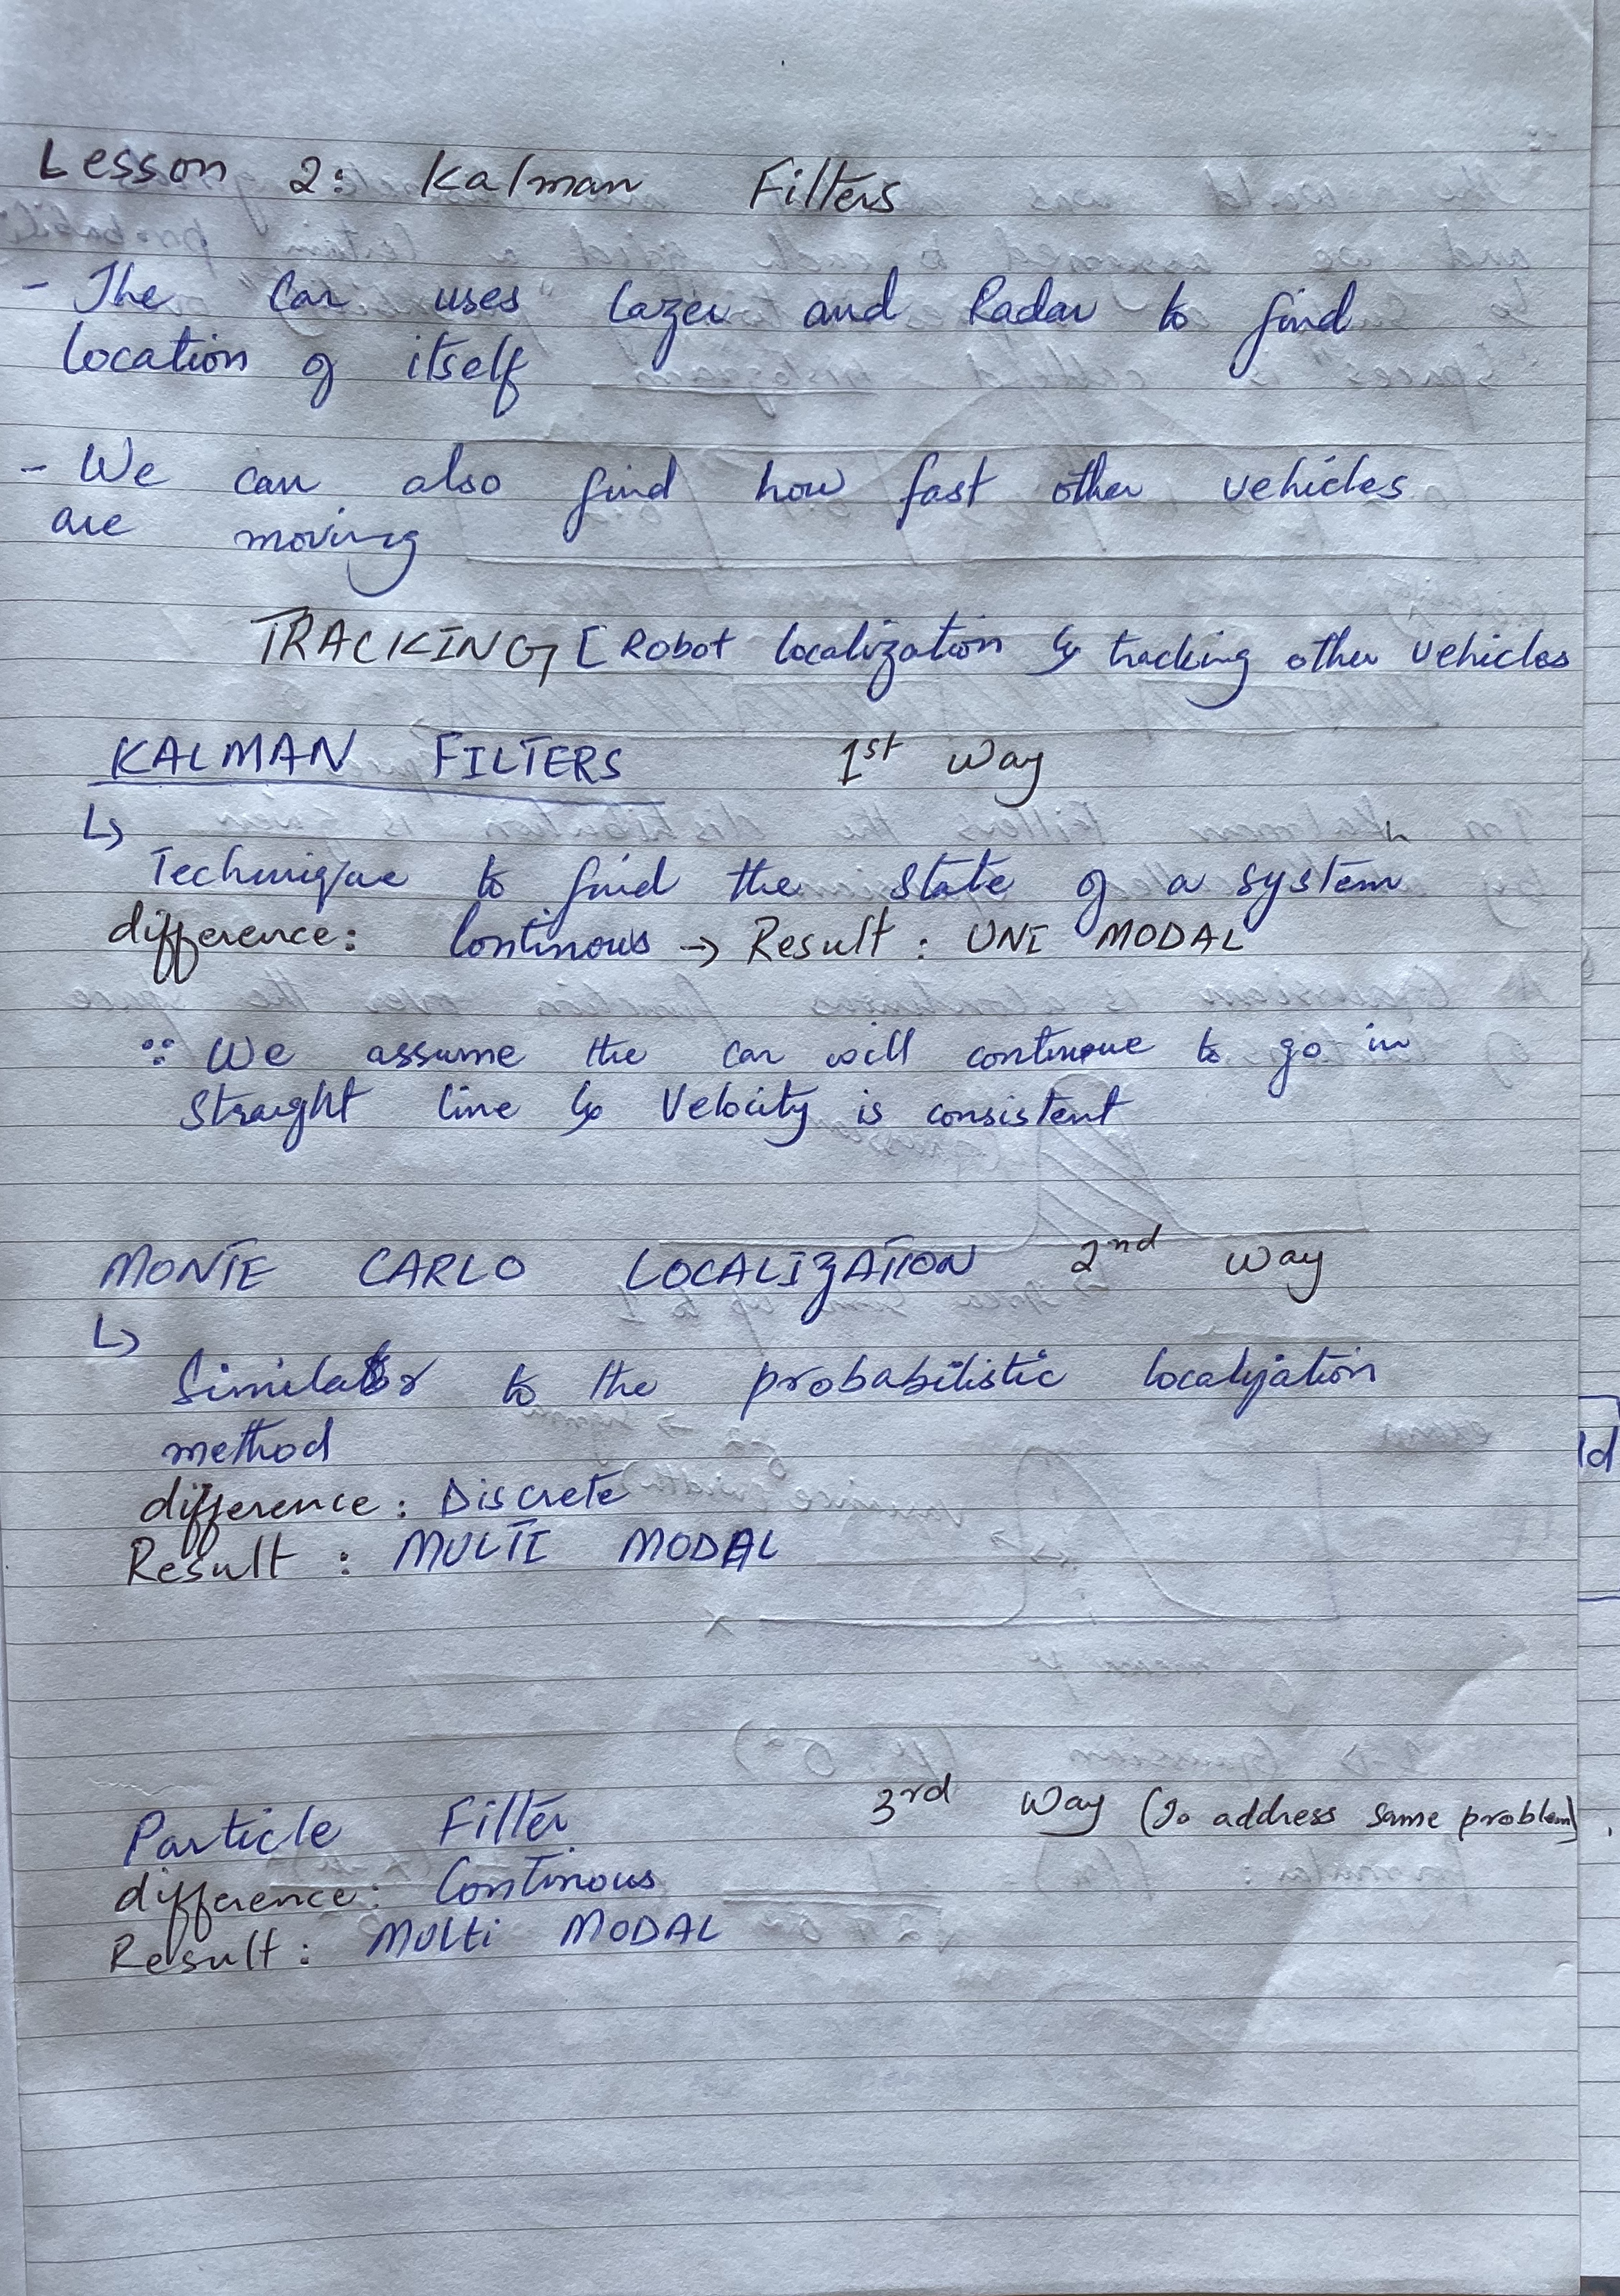 Lesson 2: Kalman Filters
- The Car uses Lazer and Radar to find
location of itself
- We can also find how fast other vehicles
are moving
TRACKING [ Robot localization & tracking other vehicles
KALMAN FILTERS 1st way
↳
Technique to find the state of a system
difference: Continous → Result : UNI MODAL
∵ We assume the car will continue to go in
straight line & Velocity is consistent
MONTE CARLO LOCALIZATION 2nd way
↳
Similar to the probabilistic localization
method
difference : Discrete
Result : MULTI MODAL
Particle Filter 3rd Way (To address same problem)
difference : Continous
Result : MULti MODAL